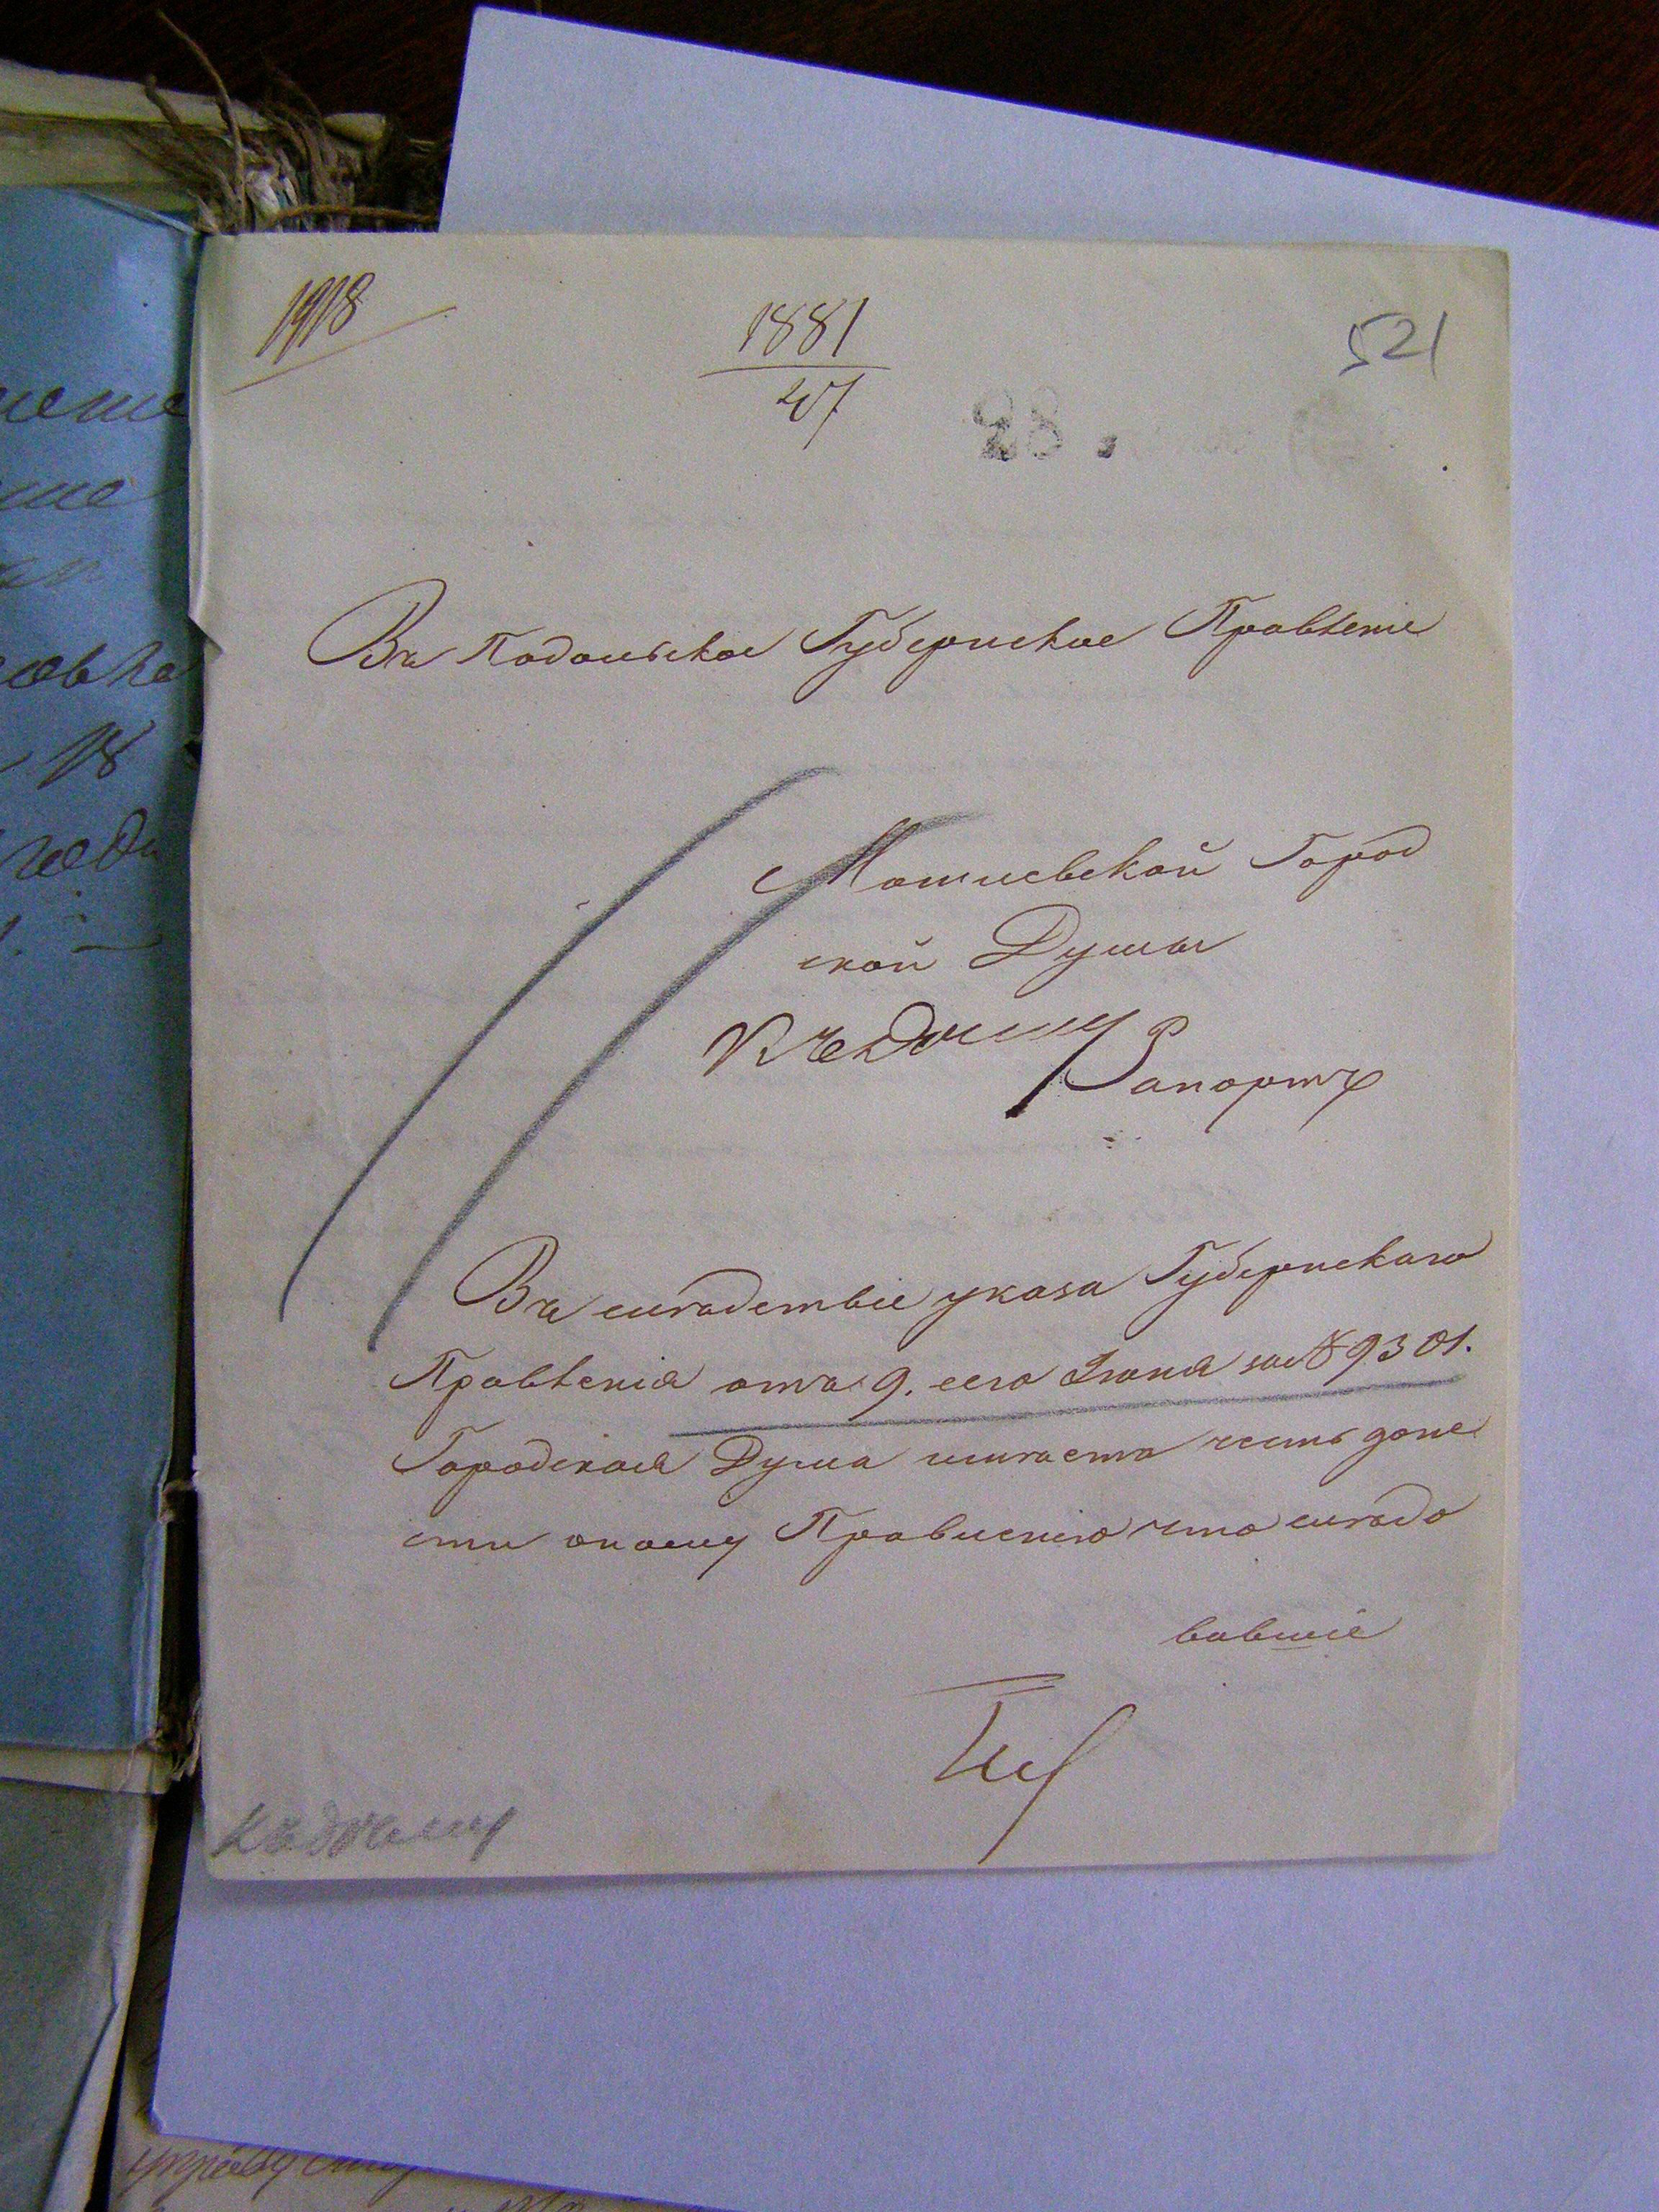 1918
1881
27
521
28
Въ Подольское Губернское Правленіе
Могилевской Город
ской Думы
Къ дѣлу
Рапортъ
Въ слѣдствіе указа Губернскаго
Правленія отъ 9. сего Іюня за № 9301.
Городская Дума имѣетъ честь доне
сти оному Правленію что слѣдо
вавшіе
Къ дѣлу